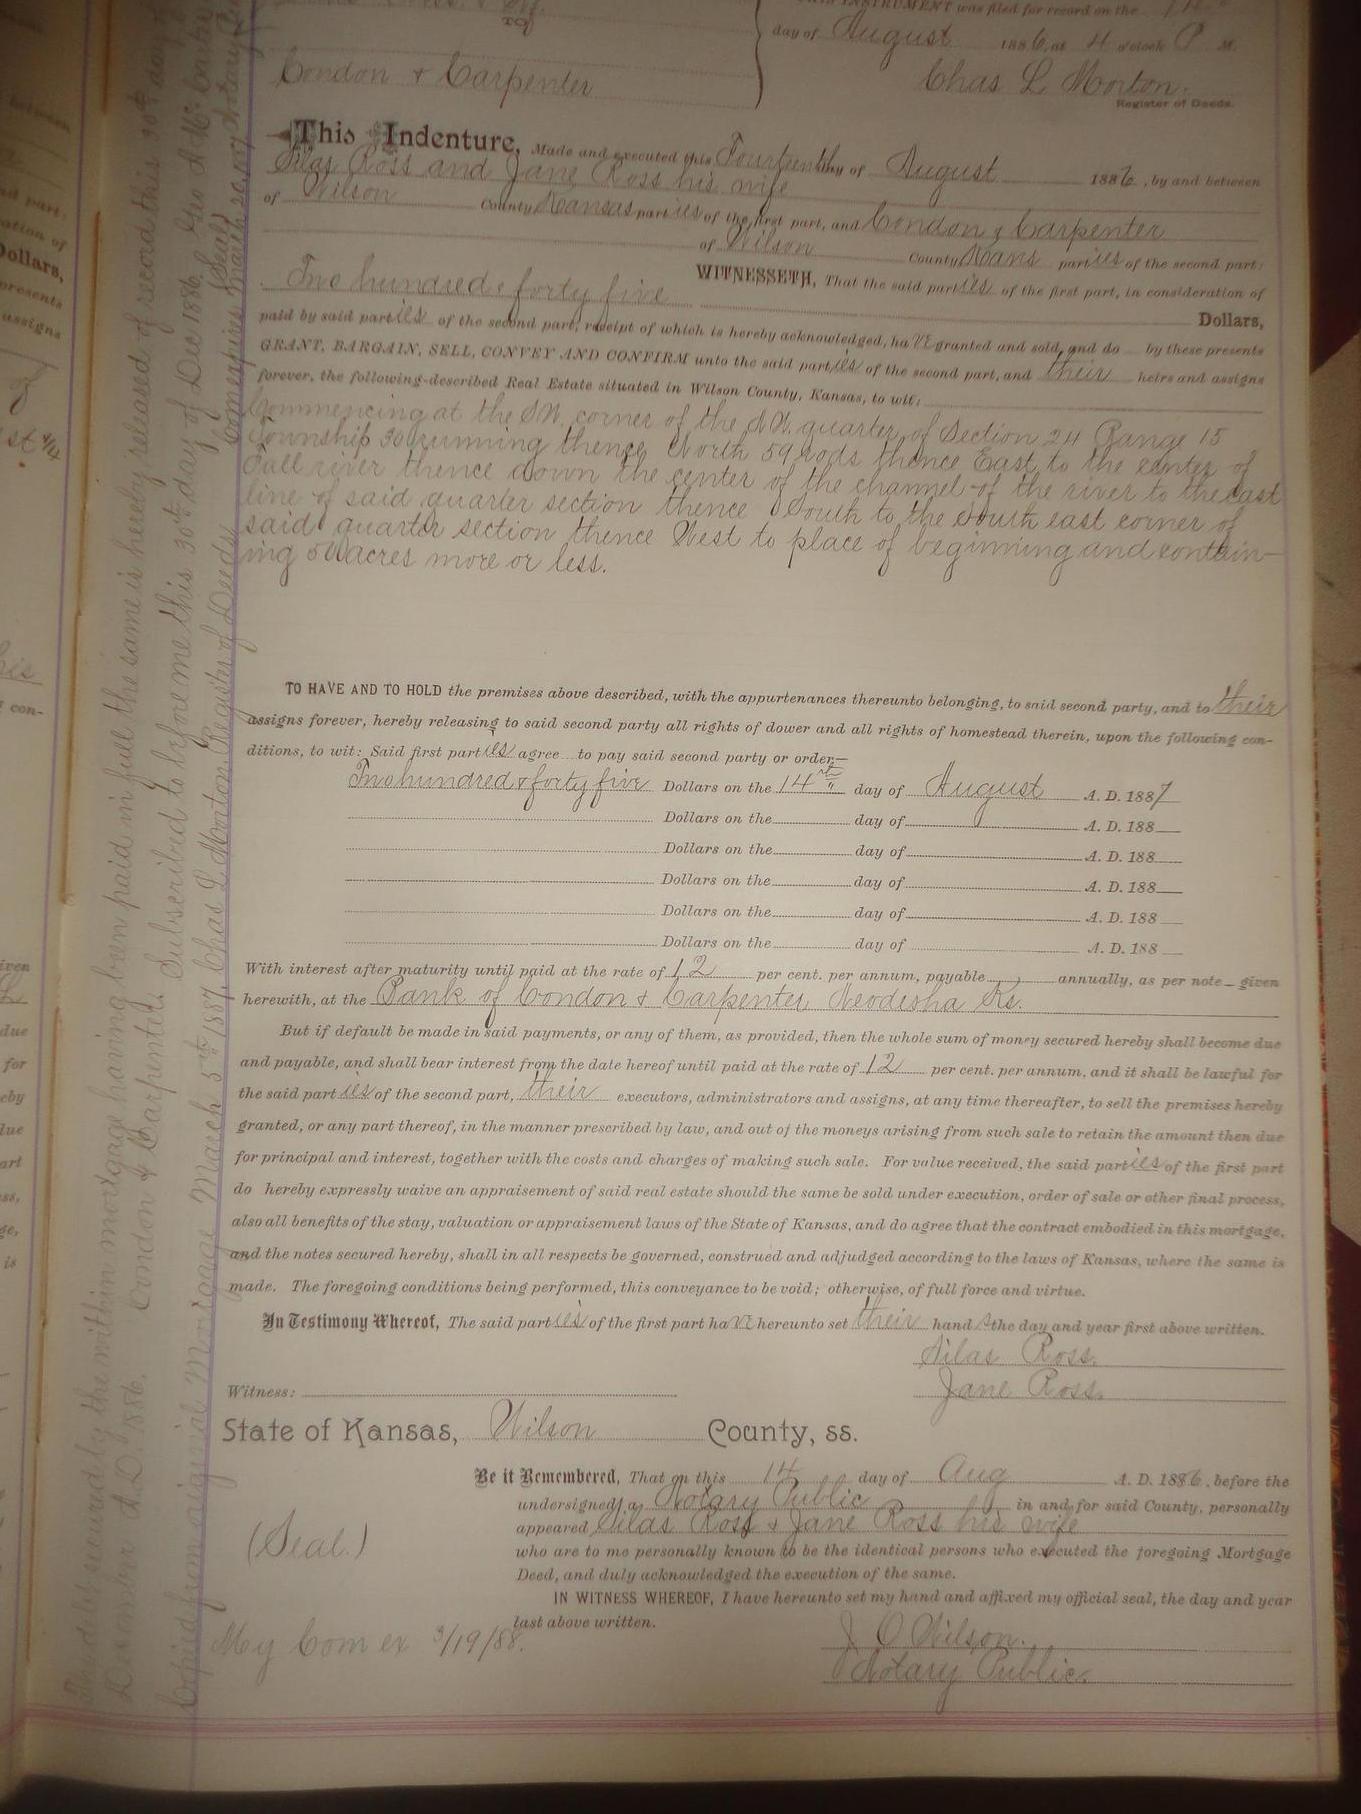 INSTRUMENT was filed for record on the
TO
day of August 1886, at 4 o'clock P M.
Condon & Carpenter
Chas L Morton.
Register of Deeds.
This Indenture, Made and executed this Fourteenth day of August 1886, by and between
Silas Ross and Jane Ross his wife
of Wilson County Kansas parties of the first part, and Condon & Carpenter
of Wilson County Kans parties of the second part:
WITNESSETH, That the said parties of the first part, in consideration of
Two hundred & forty five Dollars,
paid by said parties of the second part, receipt of which is hereby acknowledged, have granted and sold, and do by these presents
GRANT, BARGAIN, SELL, CONVEY AND CONFIRM unto the said parties of the second part, and their heirs and assigns
forever, the following-described Real Estate situated in Wilson County, Kansas, to wit:
Commencing at the S.W. corner of the N.W. quarter of Section 24 Range 15
Township 30 running thence North 59 rods thence East to the center of
Fall river thence down the center of the channel of the river to the east
line of said quarter section thence South to the South east corner of
said quarter section thence West to place of beginning and contain-
ing 50 acres more or less.
TO HAVE AND TO HOLD the premises above described, with the appurtenances thereunto belonging, to said second party, and to their
assigns forever, hereby releasing to said second party all rights of dower and all rights of homestead therein, upon the following con-
ditions, to wit: Said first parties agree to pay said second party or order,—
Two hundred & forty five Dollars on the 14th day of August A. D. 1887
Dollars on the day of A. D. 188
Dollars on the day of A. D. 188
Dollars on the day of A. D. 188
Dollars on the day of A. D. 188
Dollars on the day of A. D. 188
With interest after maturity until paid at the rate of 12 per cent. per annum, payable annually, as per note given
herewith, at the Bank of Condon & Carpenter Neodesha Ks.
But if default be made in said payments, or any of them, as provided, then the whole sum of money secured hereby shall become due
and payable, and shall bear interest from the date hereof until paid at the rate of 12 per cent. per annum, and it shall be lawful for
the said parties of the second part, their executors, administrators and assigns, at any time thereafter, to sell the premises hereby
granted, or any part thereof, in the manner prescribed by law, and out of the moneys arising from such sale to retain the amount then due
for principal and interest, together with the costs and charges of making such sale. For value received, the said parties of the first part
do hereby expressly waive an appraisement of said real estate should the same be sold under execution, order of sale or other final process,
also all benefits of the stay, valuation or appraisement laws of the State of Kansas, and do agree that the contract embodied in this mortgage,
and the notes secured hereby, shall in all respects be governed, construed and adjudged according to the laws of Kansas, where the same is
made. The foregoing conditions being performed, this conveyance to be void; otherwise, of full force and virtue.
In Testimony Whereof, The said parties of the first part have hereunto set their hands the day and year first above written.
Silas Ross.
Jane Ross.
Witness:
State of Kansas, Wilson County, ss.
Be it Remembered, That on this 14 day of Aug A. D. 1886, before the
undersigned, a Notary Public in and for said County, personally
appeared Silas Ross & Jane Ross his wife
who are to me personally known to be the identical persons who executed the foregoing Mortgage
Deed, and duly acknowledged the execution of the same.
(Seal.)
IN WITNESS WHEREOF, I have hereunto set my hand and affixed my official seal, the day and year
last above written.
My Com ex 3/19/88.
J O Wilson.
Notary Public.
The debt secured by the within mortgage having been paid in full the same is hereby released of record this 30th day of
December A.D. 1886. Condon & Carpenter.
Subscribed to before me this 30th day of Dec 1886. Geo A McCarter
(Seal) Com expires March 20 1887 Notary
Copied from original Mortgage March 5th 1887. Chas L Morton Register of Deeds